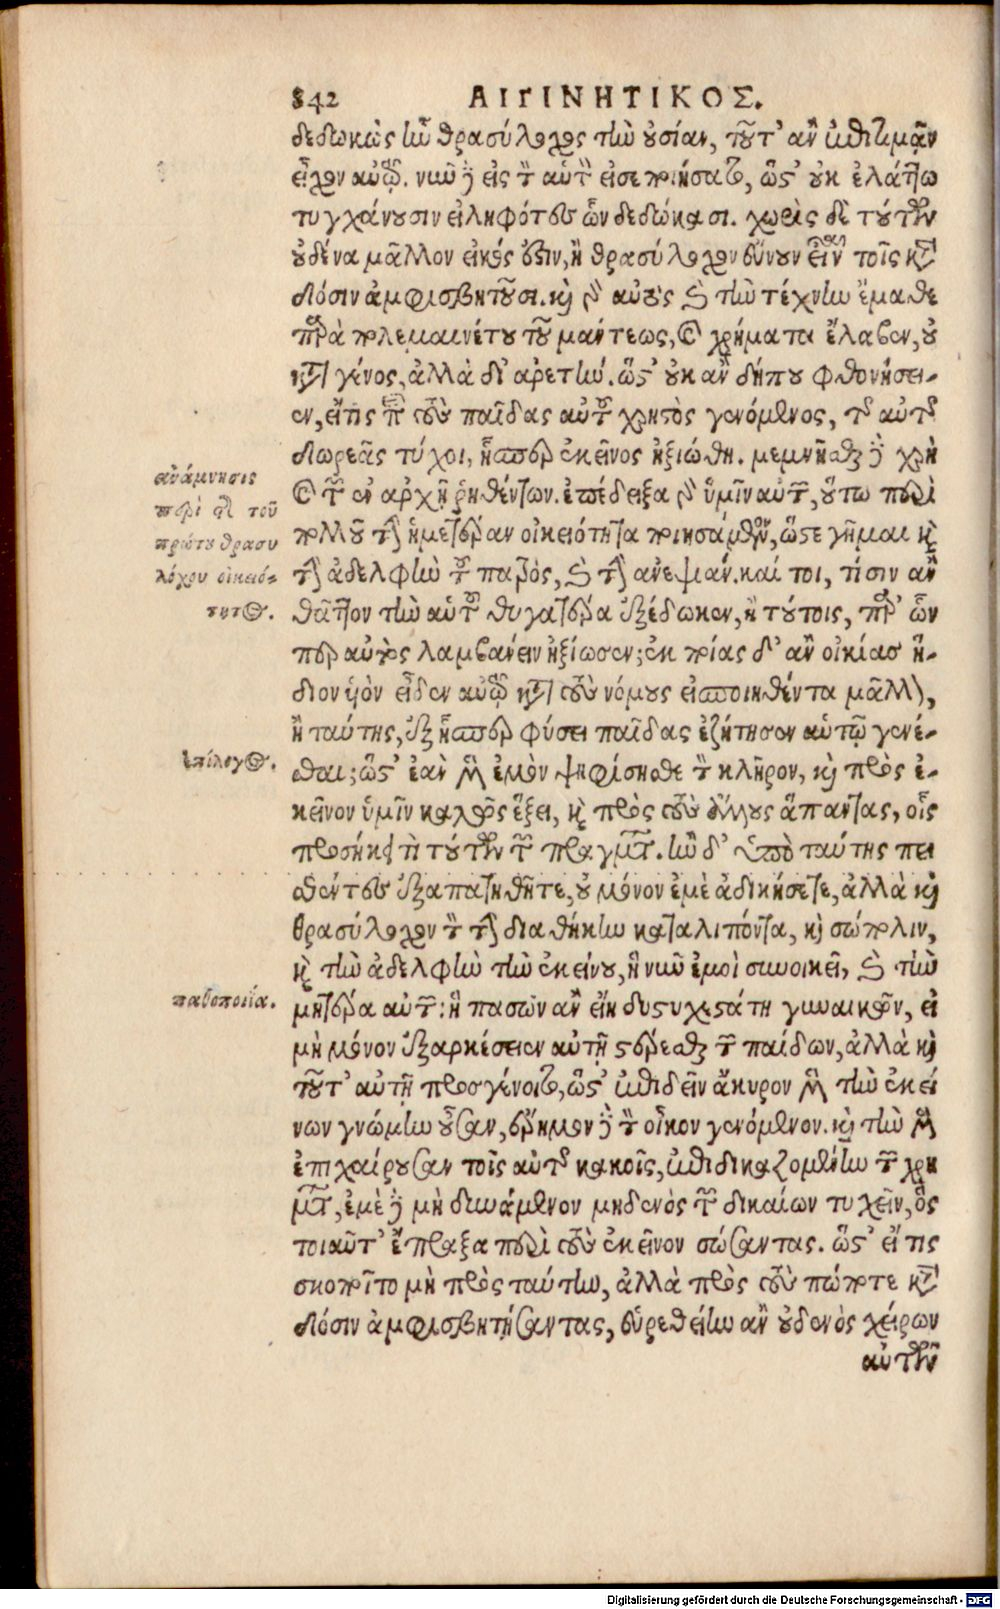 842 ΑΙΓΙΝΗΤΙΚΟΣ.
δεδωκὼς ἦν θρασύλοχος τὴν οὐσίαν, τοῦτ' ἂν ἐπιτιμᾷν
εἶχον αὐτῷ. νῦν δὲ εἰς τὸν αὑτοῦ εἰσεποιήσατο, ὥστ' οὐκ ἐλάττω
τυγχάνουσιν εἰληφότες ὧν δεδώκασι. χωρὶς δὲ τούτων
οὐδένα μᾶλλον εἰκός ἐστιν, ἢ θρασύλοχον εὔνουν εἶναι τοῖς κατὰ
δόσιν ἀμφισβητοῦσι. καὶ γὰρ αὐτὸς καὶ τὴν τέχνην ἔμαθε
παρὰ πολεμαινέτου τοῦ μάντεως, καὶ χρήματα ἔλαβεν, οὐ
κατὰ γένος, ἀλλὰ δι' ἀρετήν. ὥστ' οὐκ ἂν δήπου φθονήσει-
εν, εἴ τις περὶ τοὺς παῖδας αὐτοῦ χρηστὸς γενόμενος, τῆς αὐτῆς
δωρεᾶς τύχοι, ἧσπερ ἐκεῖνος ἠξιώθη. μεμνῆσθαι δὲ χρὴ
καὶ τῶν ἐν ἀρχῇ ῥηθέντων. ἐπέδειξα γὰρ ὑμῖν αὐτὸν, οὕτω περὶ
πολλοῦ τὴν ἡμετέραν οἰκειότητα ποιησάμενον, ὥστε γῆμαι καὶ
τὴν ἀδελφὴν τοῦ πατρὸς, καὶ τὴν ἀνεψιάν. καί τοι, τίσιν ἂν
θᾶττον τὴν αὑτοῦ θυγατέρα ἐξέδωκεν, ἢ τούτοις, παρ' ὧν
περ αὐτὸς λαμβάνειν ἠξίωσεν; ἐκ ποίας δ' ἂν οἰκίας ἥ-
διον υἱὸν εἶδεν αὑτῷ κατὰ τοὺς νόμους εἰσποιηθέντα μᾶλλον,
ἢ ταύτης, ἐξ ἧσπερ φύσει παῖδας ἐζήτησεν αὑτῷ γενέ-
σθαι; ὥστ' ἐὰν μὲν ἐμὸν ψηφίσησθε τὸν κλῆρον, καὶ πρὸς ἐ-
κεῖνον ὑμῖν καλῶς ἕξει, καὶ πρὸς τοὺς ἄλλους ἅπαντας, οἷς
προσήκει τὶ τούτων τῶν πραγμάτων. ἢν δ' ὑπὸ ταύτης πει
σθέντες ἐξαπατηθῆτε, οὐ μόνον ἐμὲ ἀδικήσετε, ἀλλὰ καὶ
θρασύλοχον τὸν τὴν διαθήκην καταλιπόντα, καὶ σώπολιν,
καὶ τὴν ἀδελφὴν τὴν ἐκείνου, ἣ νῦν ἐμοὶ συνοικεῖ, καὶ τὴν
μητέρα αὐτῶν: ἣ πασῶν ἂν εἴη δυστυχεστάτη γυναικῶν, εἰ
μὴ μόνον ἐξαρκέσειεν αὐτῇ στέρεσθαι τῶν παίδων, ἀλλὰ καὶ
τοῦτ' αὐτῇ προσγένοιτο, ὥστ' ἐπιδεῖν ἄκυρον μὲν τὴν ἐκεί
νων γνώμην οὖσαν, ἔρημον δὲ τὸν οἶκον γενόμενον. καὶ τὴν μὲν
ἐπιχαίρουσαν τοῖς αὐτῆς κακοῖς, ἐπιδικαζομένην τῶν χρη
μάτων, ἐμὲ δὲ μὴ δυνάμενον μηδενὸς τῶν δικαίων τυχεῖν, ὃς
τοιαῦτ' ἔπραξα περὶ τοὺς ἐκεῖνον σώσαντας. ὥστ' εἴ τις
σκοποῖτο μὴ πρὸς ταύτην, ἀλλὰ πρὸς τοὺς πώποτε κατὰ
δόσιν ἀμφισβητήσαντας, εὑρεθείην ἂν οὐδενὸς χείρων
αὐτῶν
ἀνάμνησις
περὶ τῆς τοῦ
πρώτου θρασυ
λόχου οἰκειό-
τητος.
ἐπίλογος.
παθοποιία.
Digitalisierung gefördert durch die Deutsche Forschungsgemeinschaft - DFG